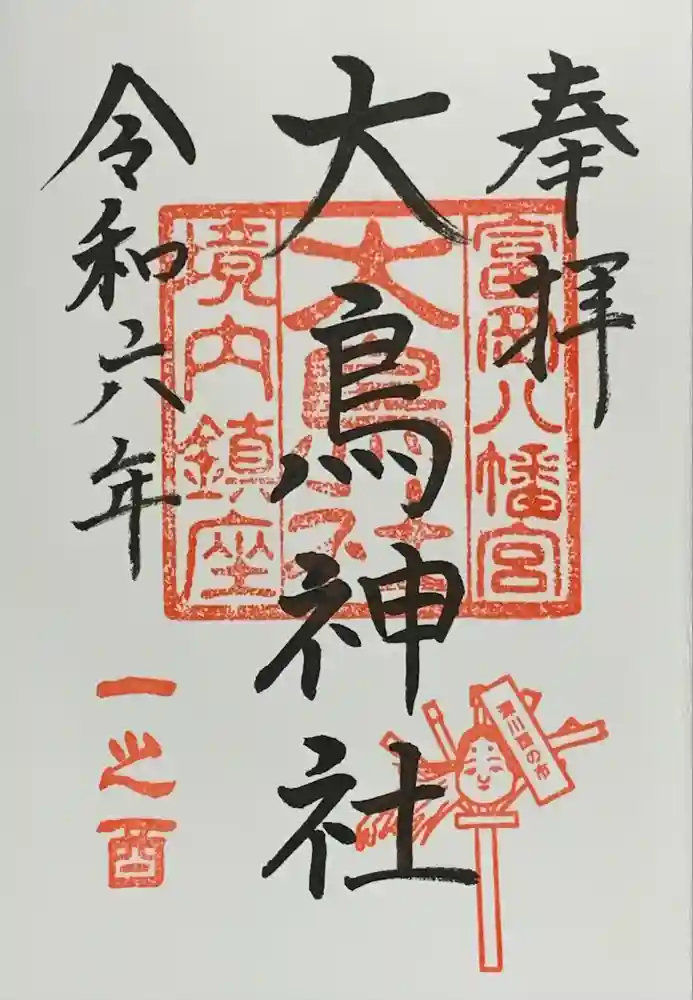 奉拝
富岡八幡宮
大鳥神社
大鳥神社
境内鎮座
令和六年
一之酉
深川酉の市